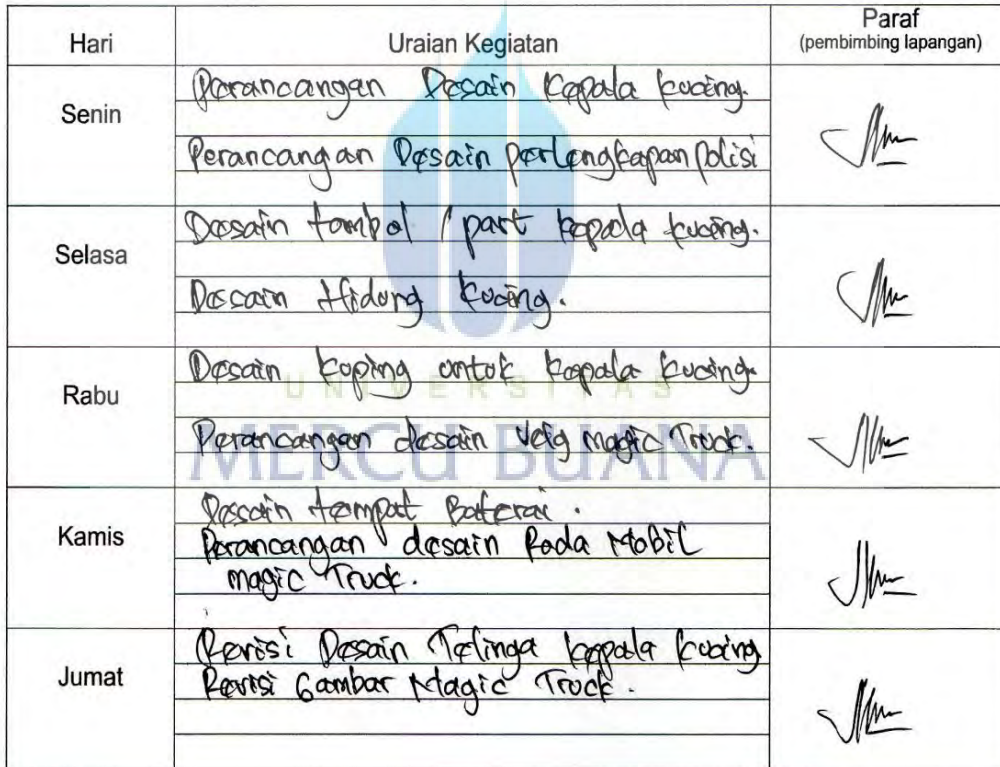 Hari Uraian Kegiatan Paraf
(pembimbing lapangan)
Senin
Perancangan Desain Kepala kucing.
Perancangan Desain perlengkapan polisi
Selasa
Desain tombol / part kepala kucing.
Desain Hidung kucing.
Rabu
Desain kuping untuk kepala kucing.
UNIVERSITAS
Perancangan desain Velg magic Truck.
MERCU BUANA
Kamis
Desain tempat Baterai.
Perancangan desain Roda Mobil
magic Truck.
Jumat
Revisi Desain Telinga kepala kucing
Revisi Gambar Magic Truck.